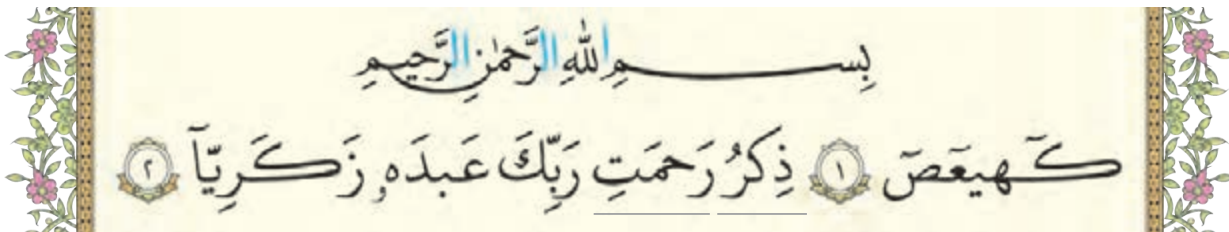 بِسمِ اللهِ الرَّحمٰنِ الرَّحيمِ
كهيعص ١ ذِكرُ رَحمَتِ رَبِّكَ عَبدَهُ زَكَرِيّا ٢